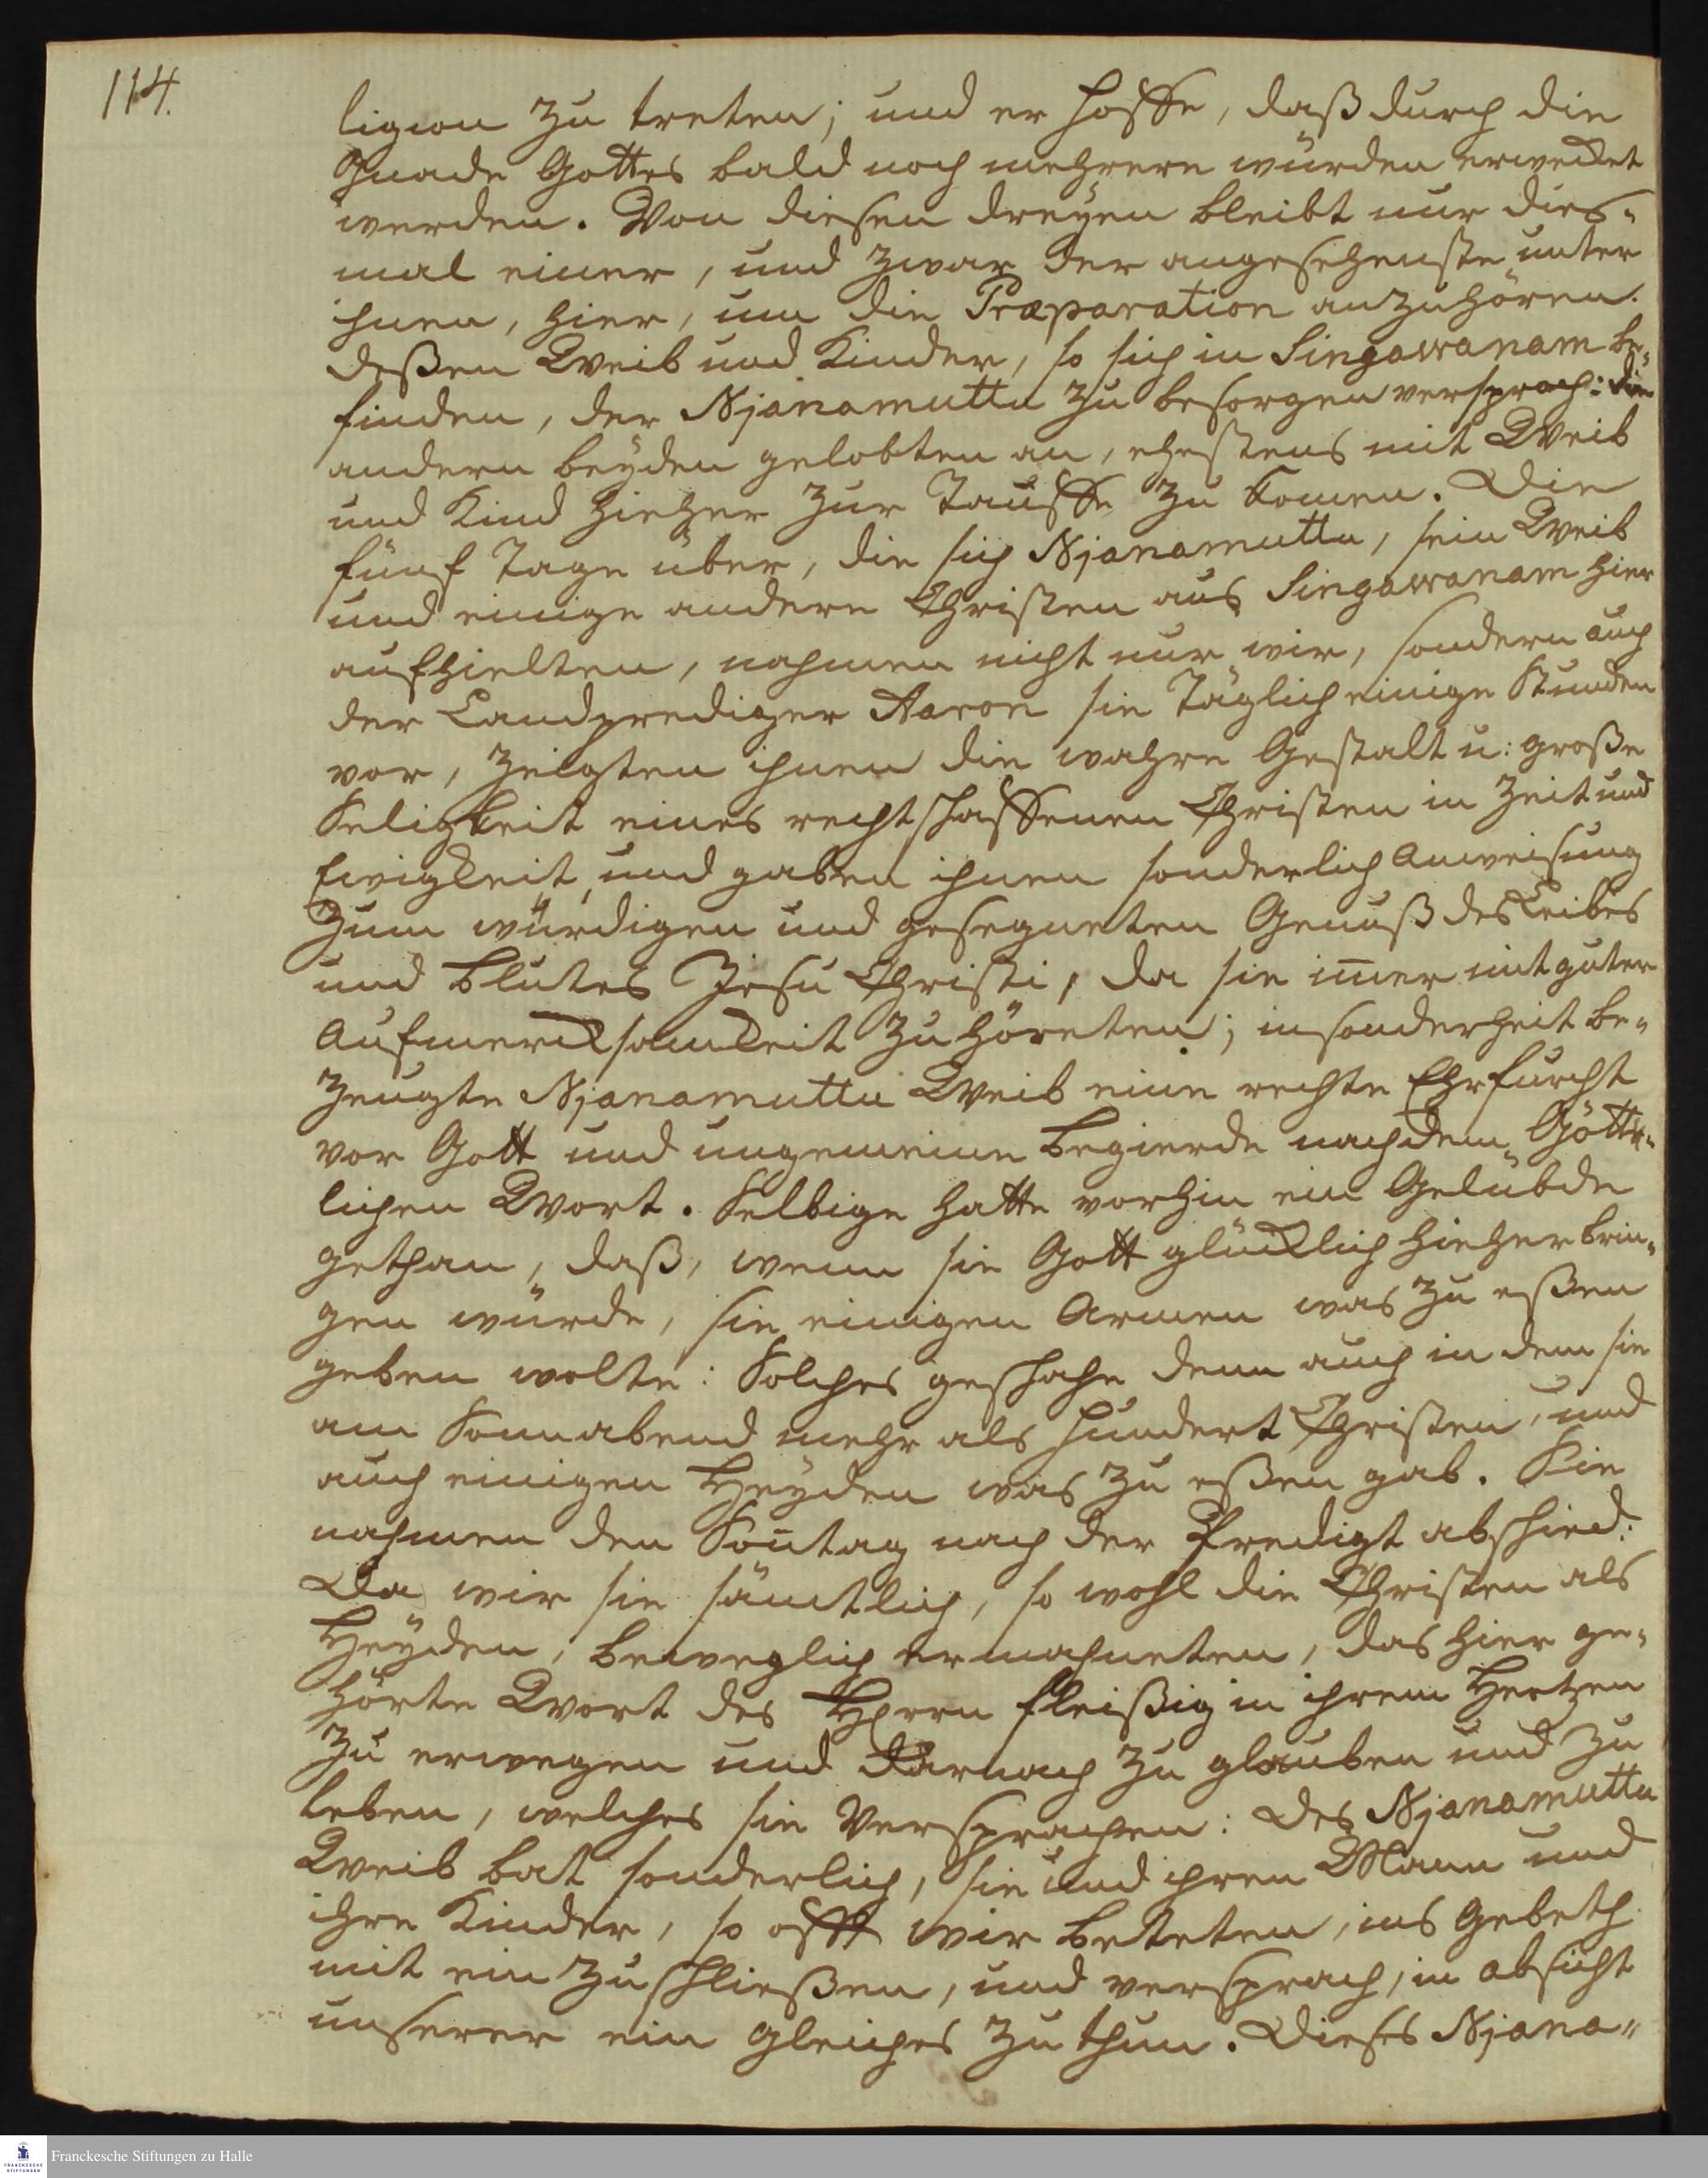 114.
ligion zu treten; und er hoffe, daß durch die
Gnade Gottes bald noch mehrere würden erwecket
werden. Von diesen dreyen bleibt nur dies-
mal einer, und zwar der angesehenste unter
ihnen, hier, um die Præparation anzuhören.
deßen Weib und Kinder, so sich in Singawanam be-
finden, der Njanamuttu zu besorgen versprach: die
andern beyden gelobten an, ehestens mit Weib
und Kind hieher zur Tauffe zu komen. Die
fünf Tage über, die sich Njanamuttu, sein Weib
und einige andere Christen aus Singawanam hier
aufhielten, nahmen nicht nur wir, sondern auch
der Landprediger Aaron sie täglich einige Stunden
vor, zeigten ihnen die wahre Gestalt u: große
Seligkeit eines rechtschaffenen Christen in Zeit und
Ewigkeit, und gaben ihnen sonderlich Anweisung
zum würdigen und gesegneten Genuß des Leibes
und Blutes Jesu Christi, da sie im̅er mit guter
Aufmercksamkeit zuhöreten; insonderheit be-
zeugte Njanamuttu Weib eine rechte Ehrfurcht
vor Gott und ungemeine Begierde nach dem Gött-
lichen Wort. Selbige hatte vorhin ein Gelübde
gethan, daß, wenn sie Gott glücklich hieher brin-
gen würde, sie einigen Armen was zu eßen
geben wolte: Solches geschahe denn auch in dem sie
am Sonnabend mehr als hundert Christen, und
auch einigen Heyden was zu eßen gab. Sie
nahmen den Son̅tag nach der Predigt abschied:
Da wir sie sämtlich, so wohl die Christen als
Heyden, beweglich ermahneten, das hier ge-
hörte Wort des HErrn fleißig in ihrem Hertzen
zu erwegen und darnach zu glauben und zu
leben, welches sie versprachen: Des Njanamuttu
Weib bat sonderlich, sie und ihren Mann und
ihre Kinder, so offt wir beteten, ins Gebeth
mit ein zu schließen, und versprach, in absicht
unserer ein gleiches zu thun. Dieses Njana-
FRANCKESCHE STIFTUNGEN
Franckesche Stiftungen zu Halle